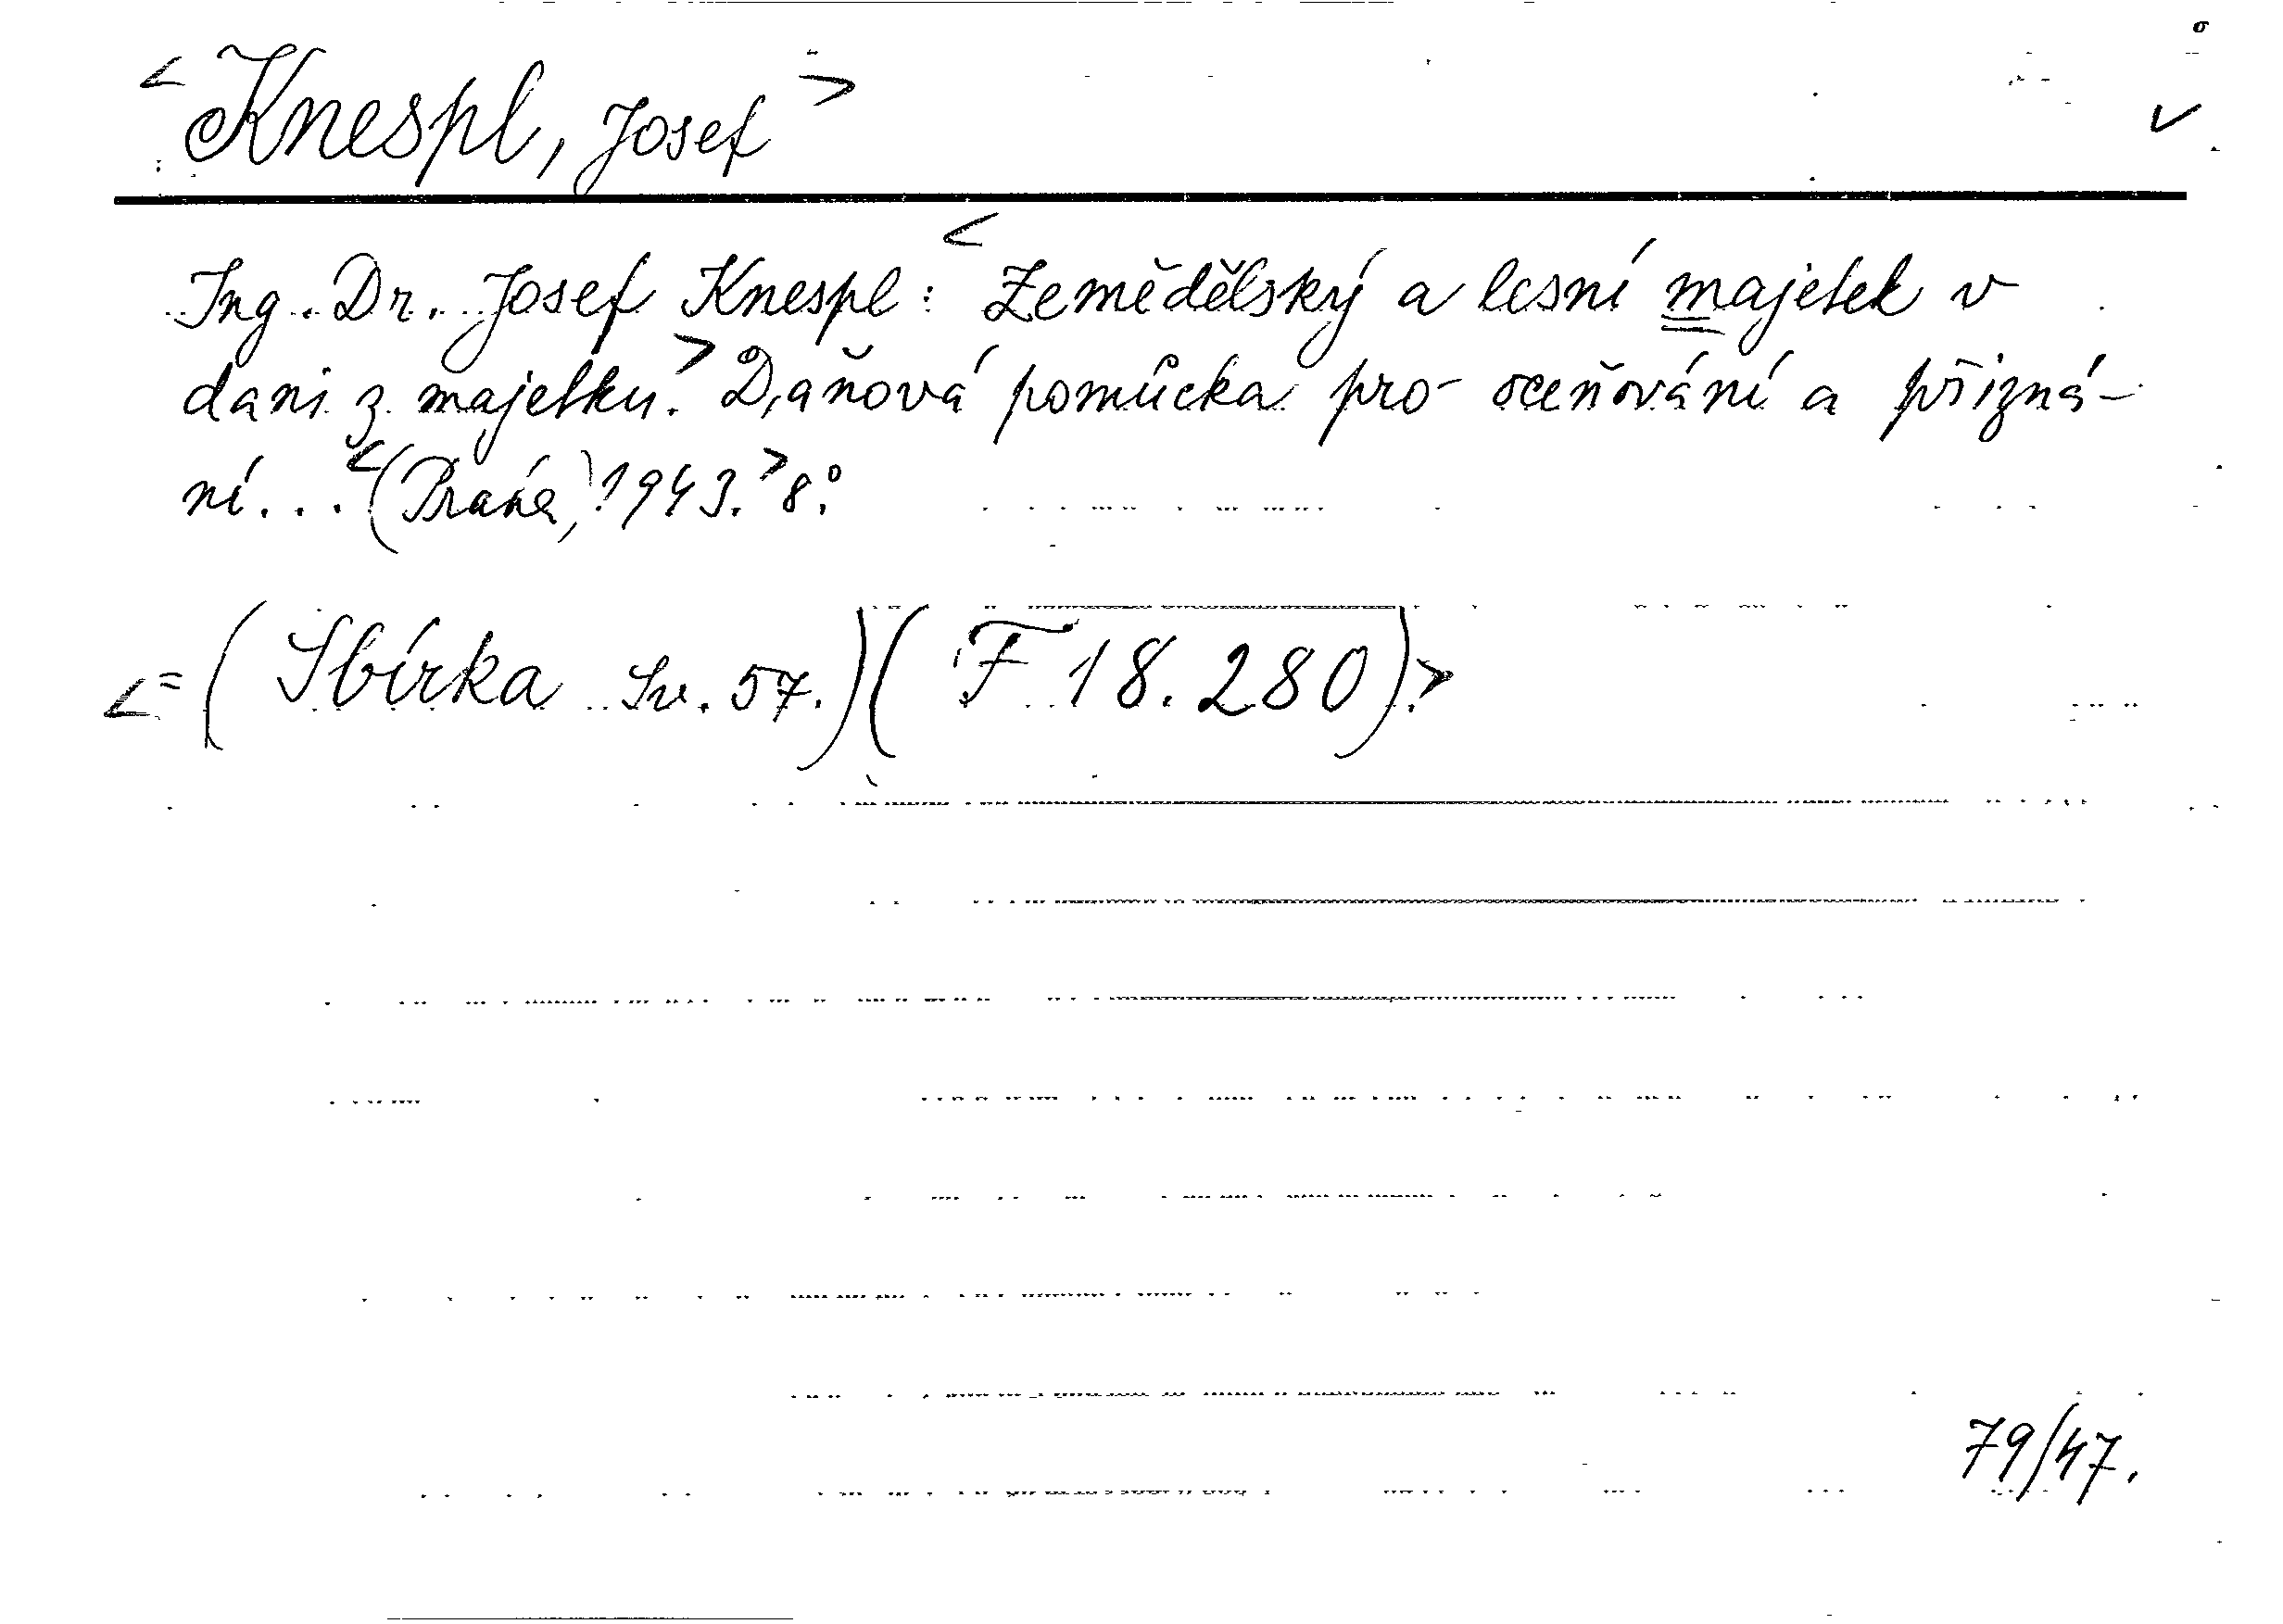 <Knespl, Josef>
Ing. Dr. Josef Knespl: <Zemědělský a lesní majetek v
dani z majetku.> Daňová pomůcka pro oceňování a přizná-
ní... <(Praha,) 1943.> 8°.
<=(Sbírka Sv. 57.)(F 18.280).>
79/47.